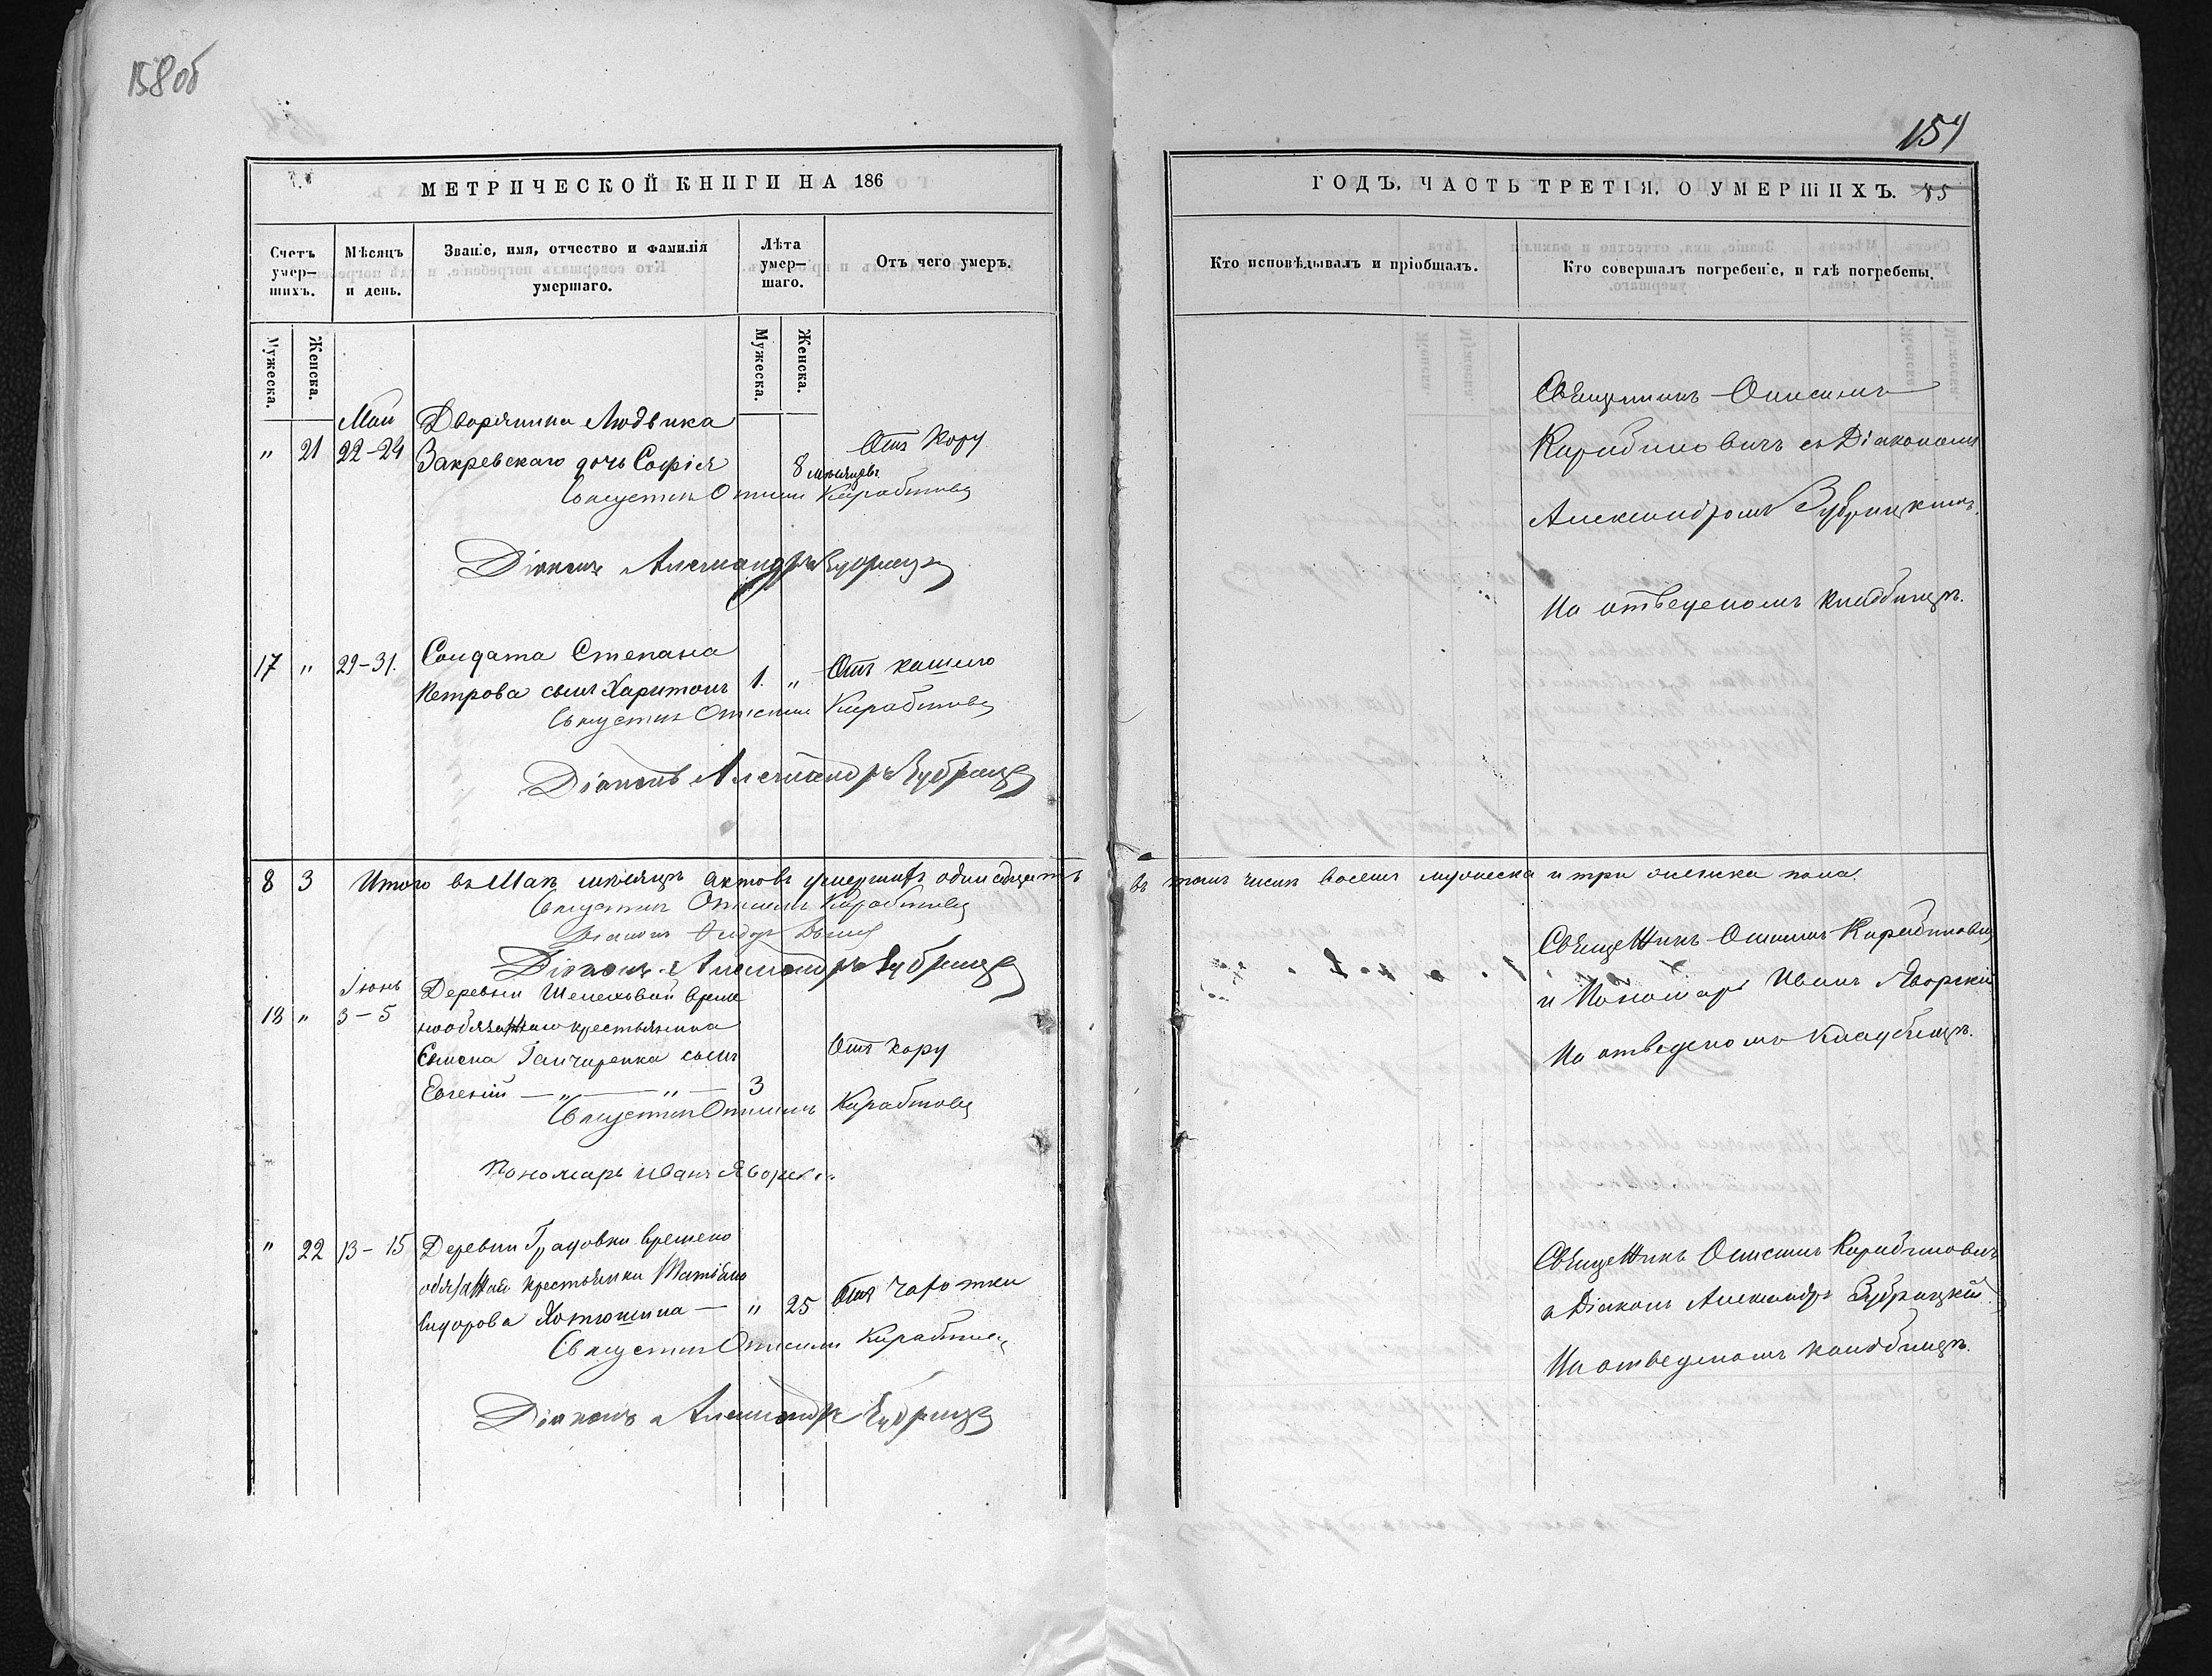 158об
МЕТРИЧЕСКОЙ КНИГИ НА 186
Счетъ умер–шихъ.
Мѣсяцъ и день.
Званіе, имя, отчество и фамилія умершаго.
Лѣта умер–шаго.
Отъ чего умеръ.
Мужеска.
Женска.
Мужеска.
Женска.
Май
Дворянина Людвика
" 21 22-24 Закревскаго дочь Софія 8 мѣсяцевъ. Отъ кору
Священникъ Онисимъ
Діаконъ Александръ Зубрицкі
17 " 29-31. Солдата Степана
Петрова сынъ Харитонъ 1. " Отъ кашлю
Священникъ Онисимъ
Діаконъ Александръ Зубрицкі
8 3 Итого въ Маѣ мѣсяцѣ актовъ умершихъ одинадцать
Священникъ Онисимъ
Діаконъ
Діаконъ Александръ Зубрицкі
Іюнь
18 " 3-5 Деревни времен
нообязаннаго крестьянина
сынъ Отъ кору
Евгеній — " — " — 3
Священникъ Онисимъ
Пономарь Иванъ Яворск
" 22 13-15 Деревни времено
обязанной крестьянки
Сидорова — " 25 Отъ чахотки
Священникъ Онисимъ
Діаконъ Александръ Зубрицкі
159
ГОДЪ, ЧАСТЬ ТРЕТІЯ, О УМЕРШИХЪ. 85
Кто исповѣдывалъ и пріобщалъ.
Кто совершалъ погребеніе, и гдѣ погребены.
Священникъ Онисимъ
Карабиновичъ съ Діакономъ
Александромъ Зубрицкимъ.
На отведеномъ кладбищѣ.
въ томъ числѣ восемь мужеска и три женска пола.
Священникъ Онисимъ Карабинович
и Пономарь Иванъ Яворскій
На отведеномъ кладбищѣ.
Священникъ Онисимъ Карабиновичъ
а Діаконъ Александръ Зубрицкій
На отведеномъ кладбищѣ.